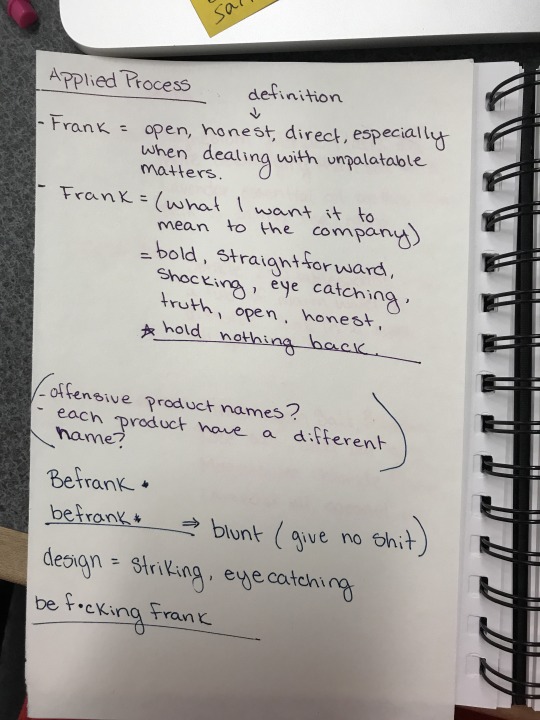 sar
Applied Process
definition
↓
- Frank = open, honest, direct, especially
when dealing with unpalatable
matters.
- Frank = (what I want it to
mean to the company)
= bold, straightforward,
shocking, eye catching,
truth, open, honest,
* hold nothing back.
- offensive product names?
- each product have a different
name?
Befrank.
befrank. ⇒ blunt (give no shit)
design = striking, eyecatching
be f•cking frank